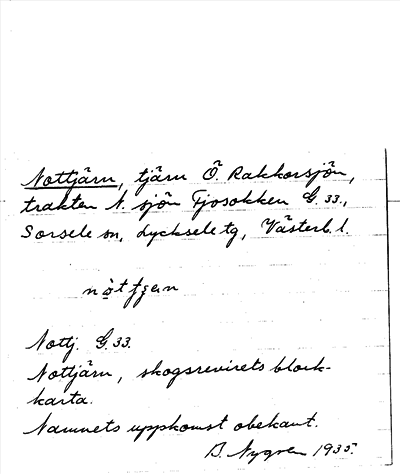 Nottjärn, tjärn Ö. Rakkorsjön,
trakten N. sjön Tjosokken G. 33.,
Sorsele sn, Lycksele tg, Västerb. l.
Nottj. G. 33.
Nottjärn, skogsrevirets block-
karta.
Namnets uppkomst obekant.
B. Nygren 1935.